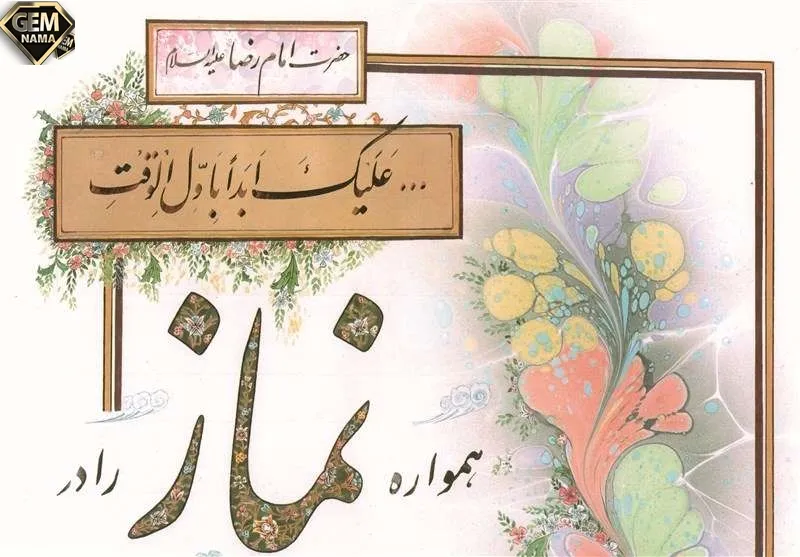 GEM
NAMA
GEM
NAMA
حضرت امام رضا علیه السلام
... عَلَیکَ اَبَداً بِاَوّلِ الْوَقْتِ
همواره نماز را در